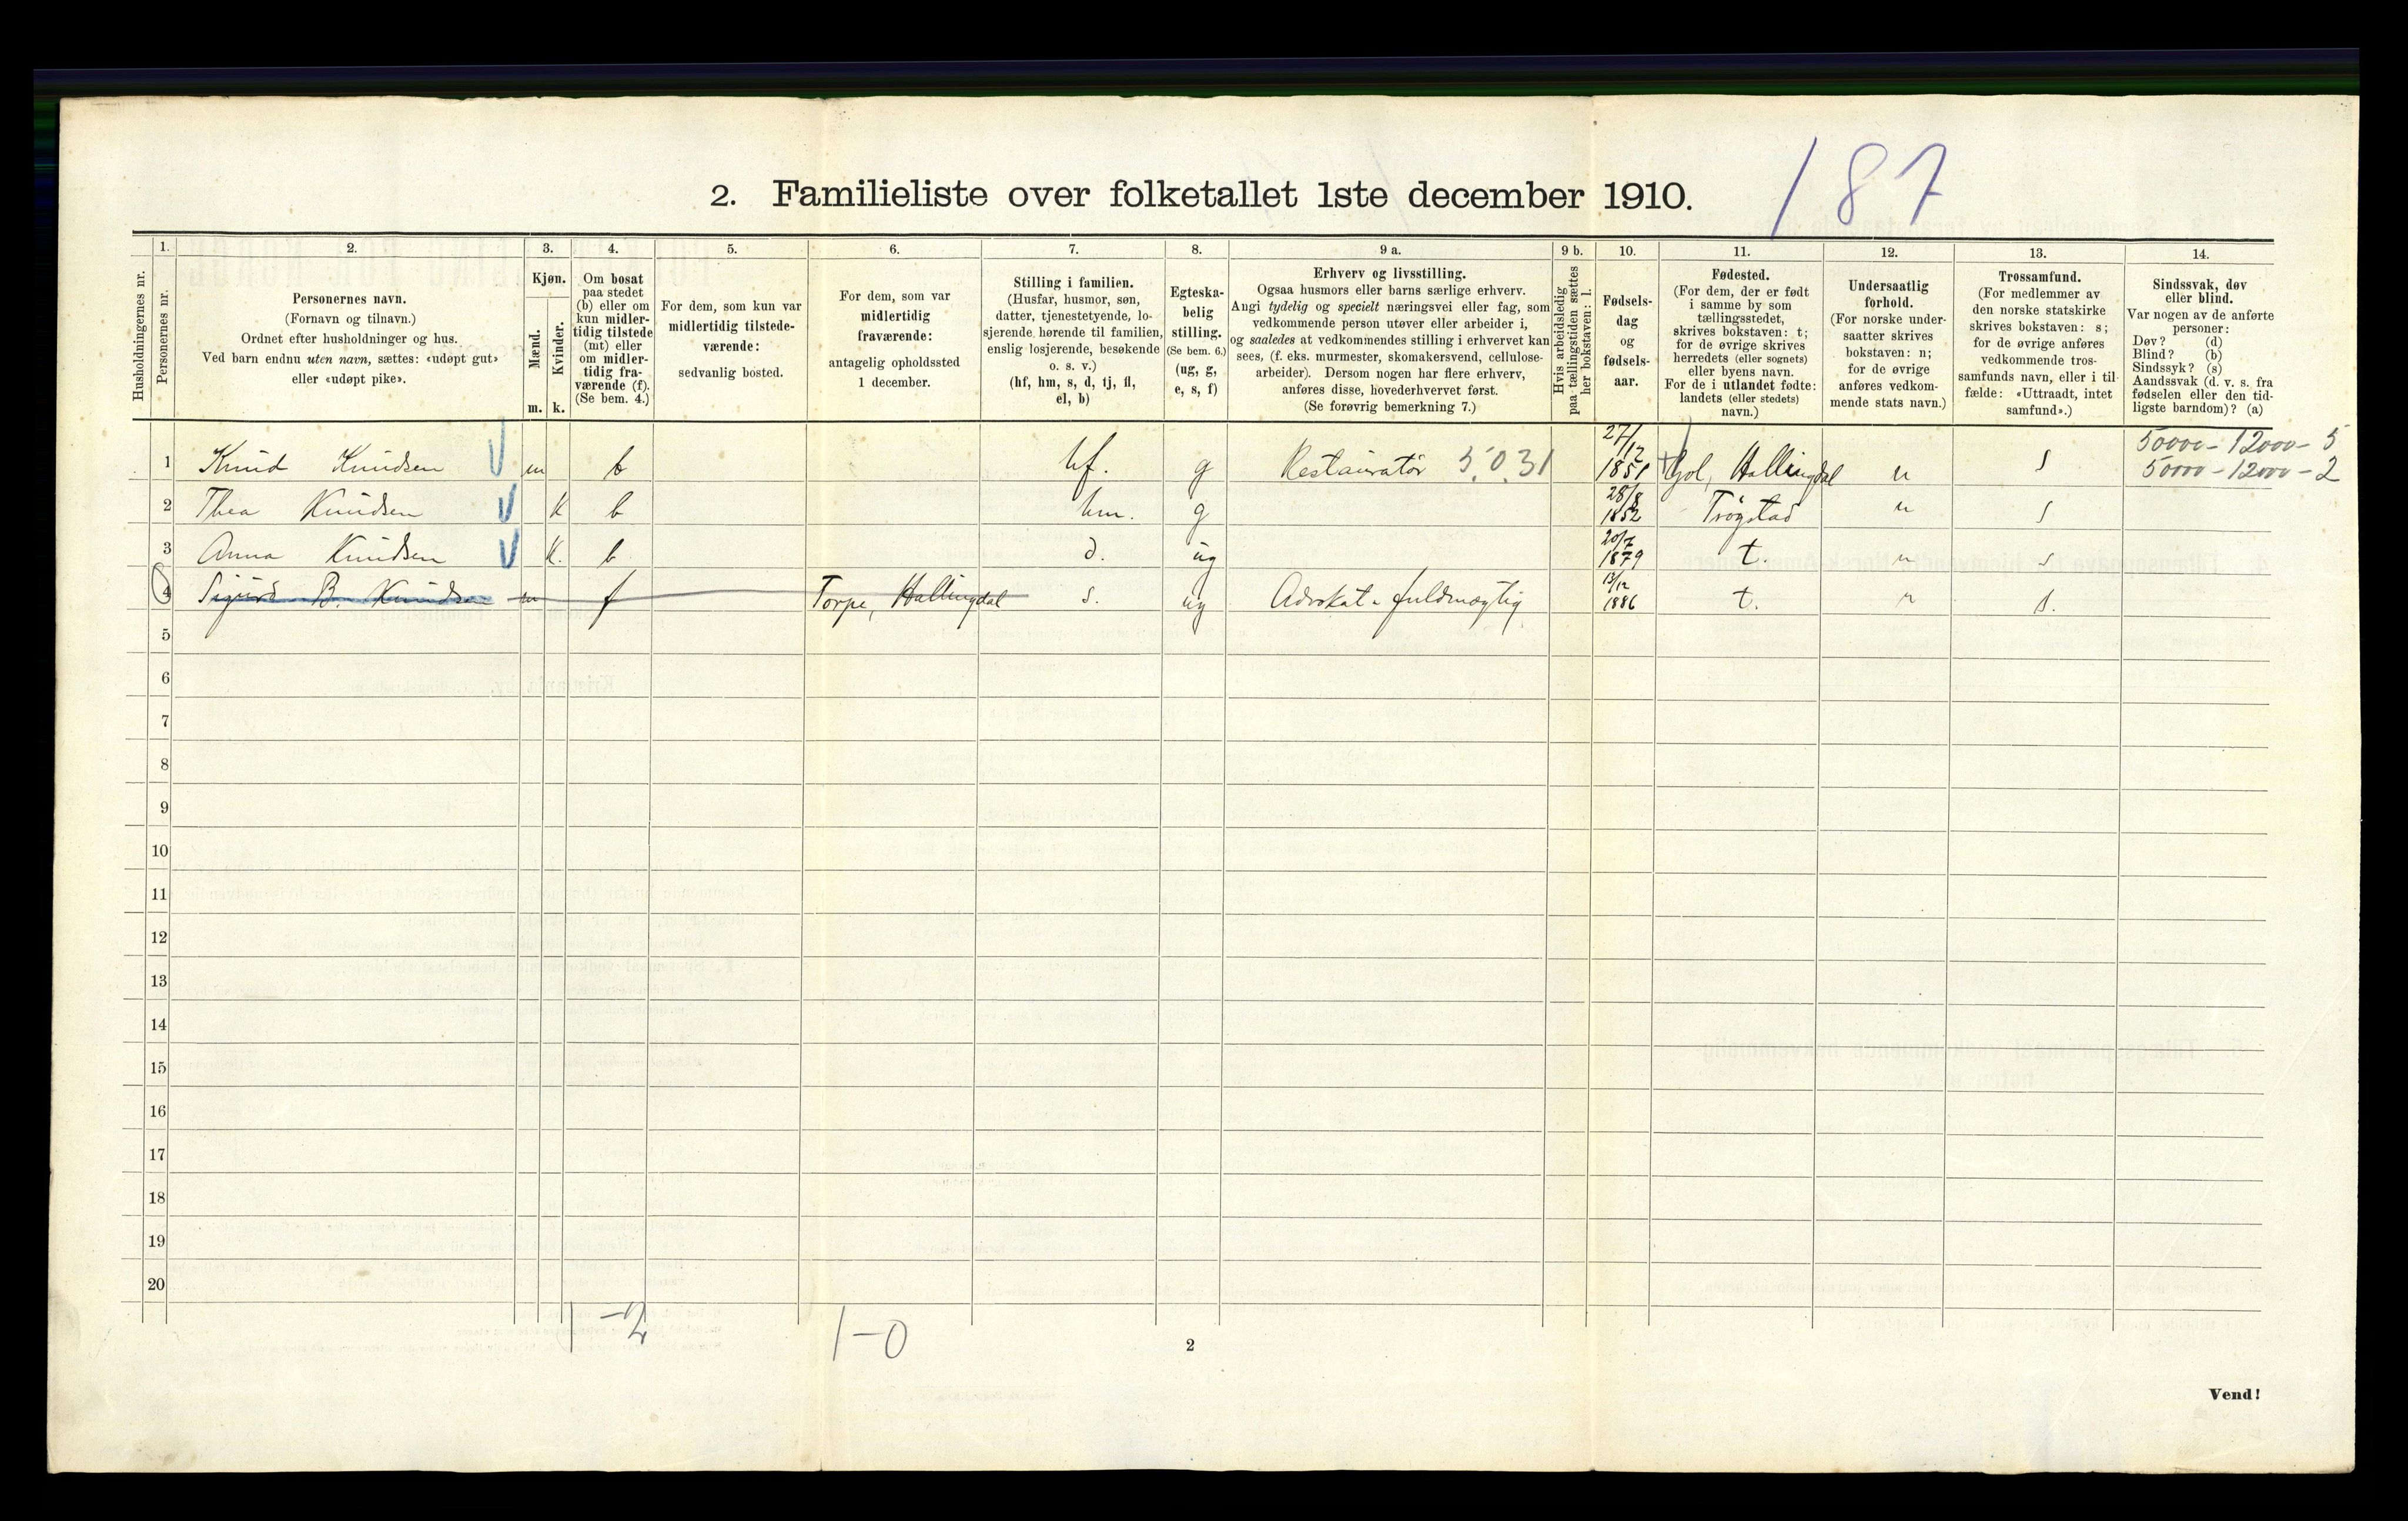 187
2. Familieliste over folketallet 1ste december 1910.
Husholdningernes nr.
1. Personernes nr.
2.
Personernes navn.
(Fornavn og tilnavn.)
Ordnet efter husholdninger og hus.
Ved barn endnu uten navn, sættes: «udøpt gut»
eller «udøpt pike».
3.
Kjøn.
Mænd. Kvinder.
m. k.
4.
Om bosat
paa stedet
(b) eller om
kun midler-
tidig tilstede
(mt) eller
om midler-
tidig fra-
værende (f).
(Se bem. 4.)
5.
For dem, som kun var
midlertidig tilstede-
værende:
sedvanlig bosted.
6.
For dem, som var
midlertidig
fraværende:
antagelig opholdssted
1 december.
7.
Stilling i familien.
(Husfar, husmor, søn,
datter, tjenestetyende, lo-
sjerende hørende til familien,
enslig losjerende, besøkende
o. s. v.)
(hf, hm, s, d, tj, fl,
el, b)
8.
Egteska-
belig
stilling.
(Se bem. 6.)
(ug, g,
e, s, f)
9 a.
Erhverv og livsstilling.
Ogsaa husmors eller barns særlige erhverv.
Angi tydelig og specielt næringsvei eller fag, som
vedkommende person utøver eller arbeider i,
og saaledes at vedkommendes stilling i erhvervet kan
sees, (f. eks. murmester, skomakersvend, cellulose-
arbeider). Dersom nogen har flere erhverv,
anføres disse, hovederhvervet først.
(Se forøvrig bemerkning 7.)
9 b.
Hvis arbeidsledig
paa tællingstiden sættes
her bokstaven: l.
10.
Fødsels-
dag
og
fødsels-
aar.
11.
Fødested.
(For dem, der er født
i samme by som
tællingsstedet,
skrives bokstaven: t;
for de øvrige skrives
herredets (eller sognets)
eller byens navn.
For de i utlandet fødte:
landets (eller stedets)
navn.)
12.
Undersaatlig
forhold.
(For norske under-
saatter skrives
bokstaven: n;
for de øvrige
anføres vedkom-
mende stats navn.)
13.
Trossamfund.
(For medlemmer av
den norske statskirke
skrives bokstaven: s;
for de øvrige anføres
vedkommende tros-
samfunds navn, eller i til-
fælde: «Uttraadt, intet
samfund».)
14.
Sindssvak, døv
eller blind.
Var nogen av de anførte
personer:
Døv? (d)
Blind? (b)
Sindssyk? (s)
Aandssvak (d. v. s. fra
fødselen eller den tid-
ligste barndom)? (a)
50000 - 12000 - 5
1 Knud Knudsen m b hf. g Restauratør 5.0.31 27/12 1851 Gol, Hallingdal n s 50000 - 12000 - 2
2 Thea Knudsen k b hm. g 28/8 1852 Trøgstad n s
3 Anna Knudsen k. b d. ug 20/7 1879 t. n s
4 Sigurd B. Knudsen m f Torpe, Hallingdal s. ug Advokat-fuldmægtig 13/12 1886 t. n s.
5
6
7
8
9
10
11
12
13
14
15
16
17
18
19
20
1-2
1-0
2
Vend!